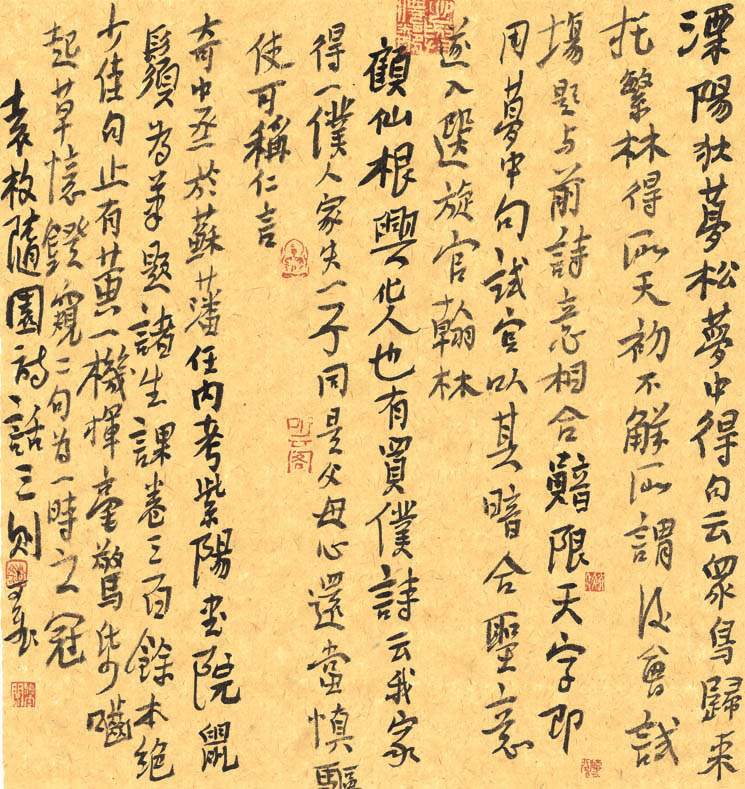 溧陽狄夢松夢中得句云眾鳥歸来
托繁林得所天初不解所謂後會試
場題与前詩意相合韻限天字即
用夢中句試官以其暗合聖意
遂入選旋官翰林
顧仙根興化人也有買僕詩云我家
得一僕人家失一子同是父母心還當慎驅
使可稱仁言
奇中丞於蘇藩任内考紫陽書院鼠
鬚為筆題諸生課卷三百餘本絕
少佳句止有黄一機揮毫驚紙嚙
起草憶鐙窺二句為一時之冠
袁枚隨園詩話三則